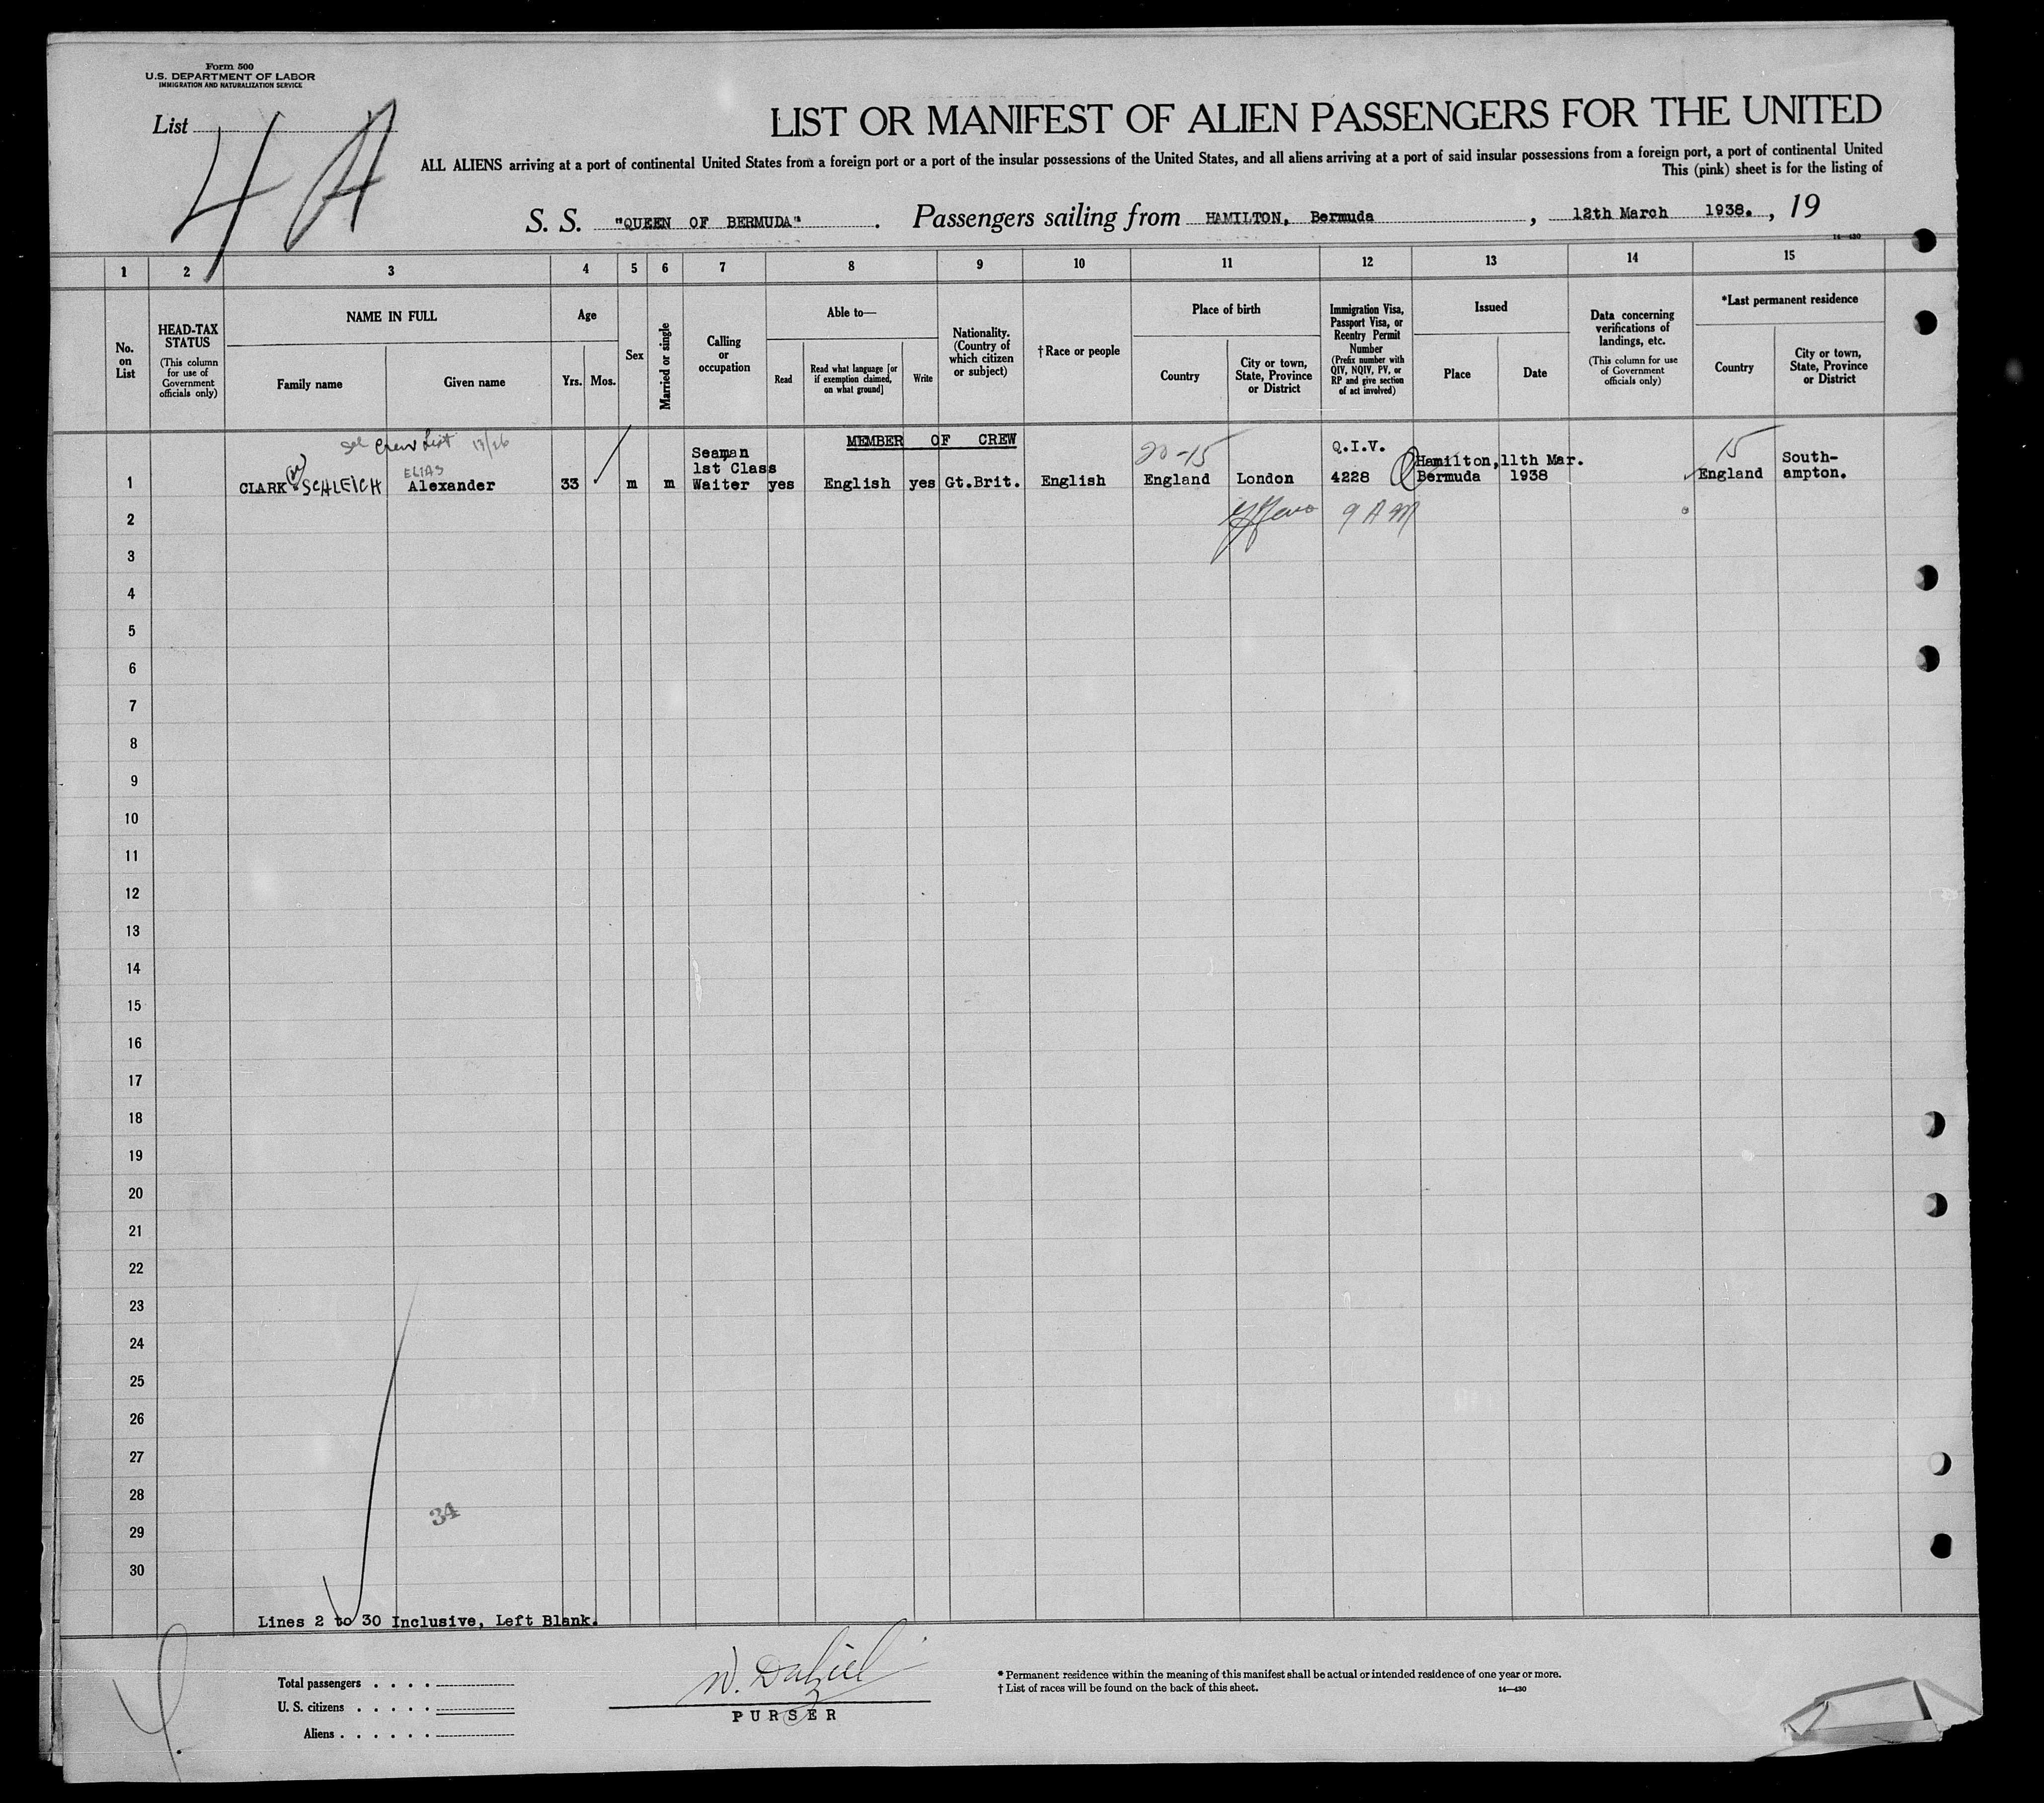 Form 500
U.S. DEPARTMENT OF LABOR
IMMIGRATION AND NATURALIZATION SERVICE
List
4 A
LIST OR MANIFEST OF ALIEN PASSENGERS FOR THE UNITED
ALL ALIENS arriving at a port of continental United States from a foreign port or a port of the insular possessions of the United States, and all aliens arriving at a port of said insular possessions from a foreign port, a port of continental United
This (pink) sheet is for the listing of
S. S. "QUEEN OF BERMUDA". Passengers sailing from HAMILTON, Bermuda, 12th March 1938., 19
14—430
1 2 3 4 5 6 7 8 9 10 11 12 13 14 15
No. on List
HEAD-TAX STATUS
(This column for use of Government officials only)
NAME IN FULL
Family name
Given name
Age
Yrs.
Mos.
Sex
Married or single
Calling or occupation
Able to—
Read
Read what language [or if exemption claimed, on what ground]
Write
Nationality. (Country of which citizen or subject)
†Race or people
Place of birth
Country
City or town, State, Province or District
Immigration Visa, Passport Visa, or Reentry Permit Number
(Prefix number with QIV, NQIV, PV, or RP and give section of act involved)
Issued
Place
Date
Data concerning verifications of landings, etc.
(This column for use of Government officials only)
*Last permanent residence
Country
City or town, State, Province or District
See Crew List
MEMBER OF CREW
20-15
Q.I.V.
15
ELIAS
Seaman 1st Class
Hamilton, 11th Mar.
South-
1 CLARK SCHLEICH Alexander 33 m m Waiter yes English yes Gt.Brit. English England London 4228 Bermuda 1938 England ampton.
2 9 AM
3
4
5
6
7
8
9
10
11
12
13
14
15
16
17
18
19
20
21
22
23
24
25
26
27
28
34
29
30
Lines 2 to 30 Inclusive, Left Blank.
Total passengers . . . .
U. S. citizens . . . . .
Aliens . . . . . .
W. Dalziel
PURSER
* Permanent residence within the meaning of this manifest shall be actual or intended residence of one year or more.
† List of races will be found on the back of this sheet.
14—430